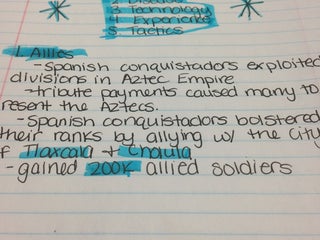 2. Disease
3. Technology
4. Experience
5. Tactics
1. Allies
- Spanish conquistadors exploited
divisions in Aztec Empire
→tribute payments caused many to
resent the Aztecs.
- Spanish conquistadors bolstered
their ranks by allying w/ the City
f Tlaxcala + Cholula
- gained 200K allied soldiers